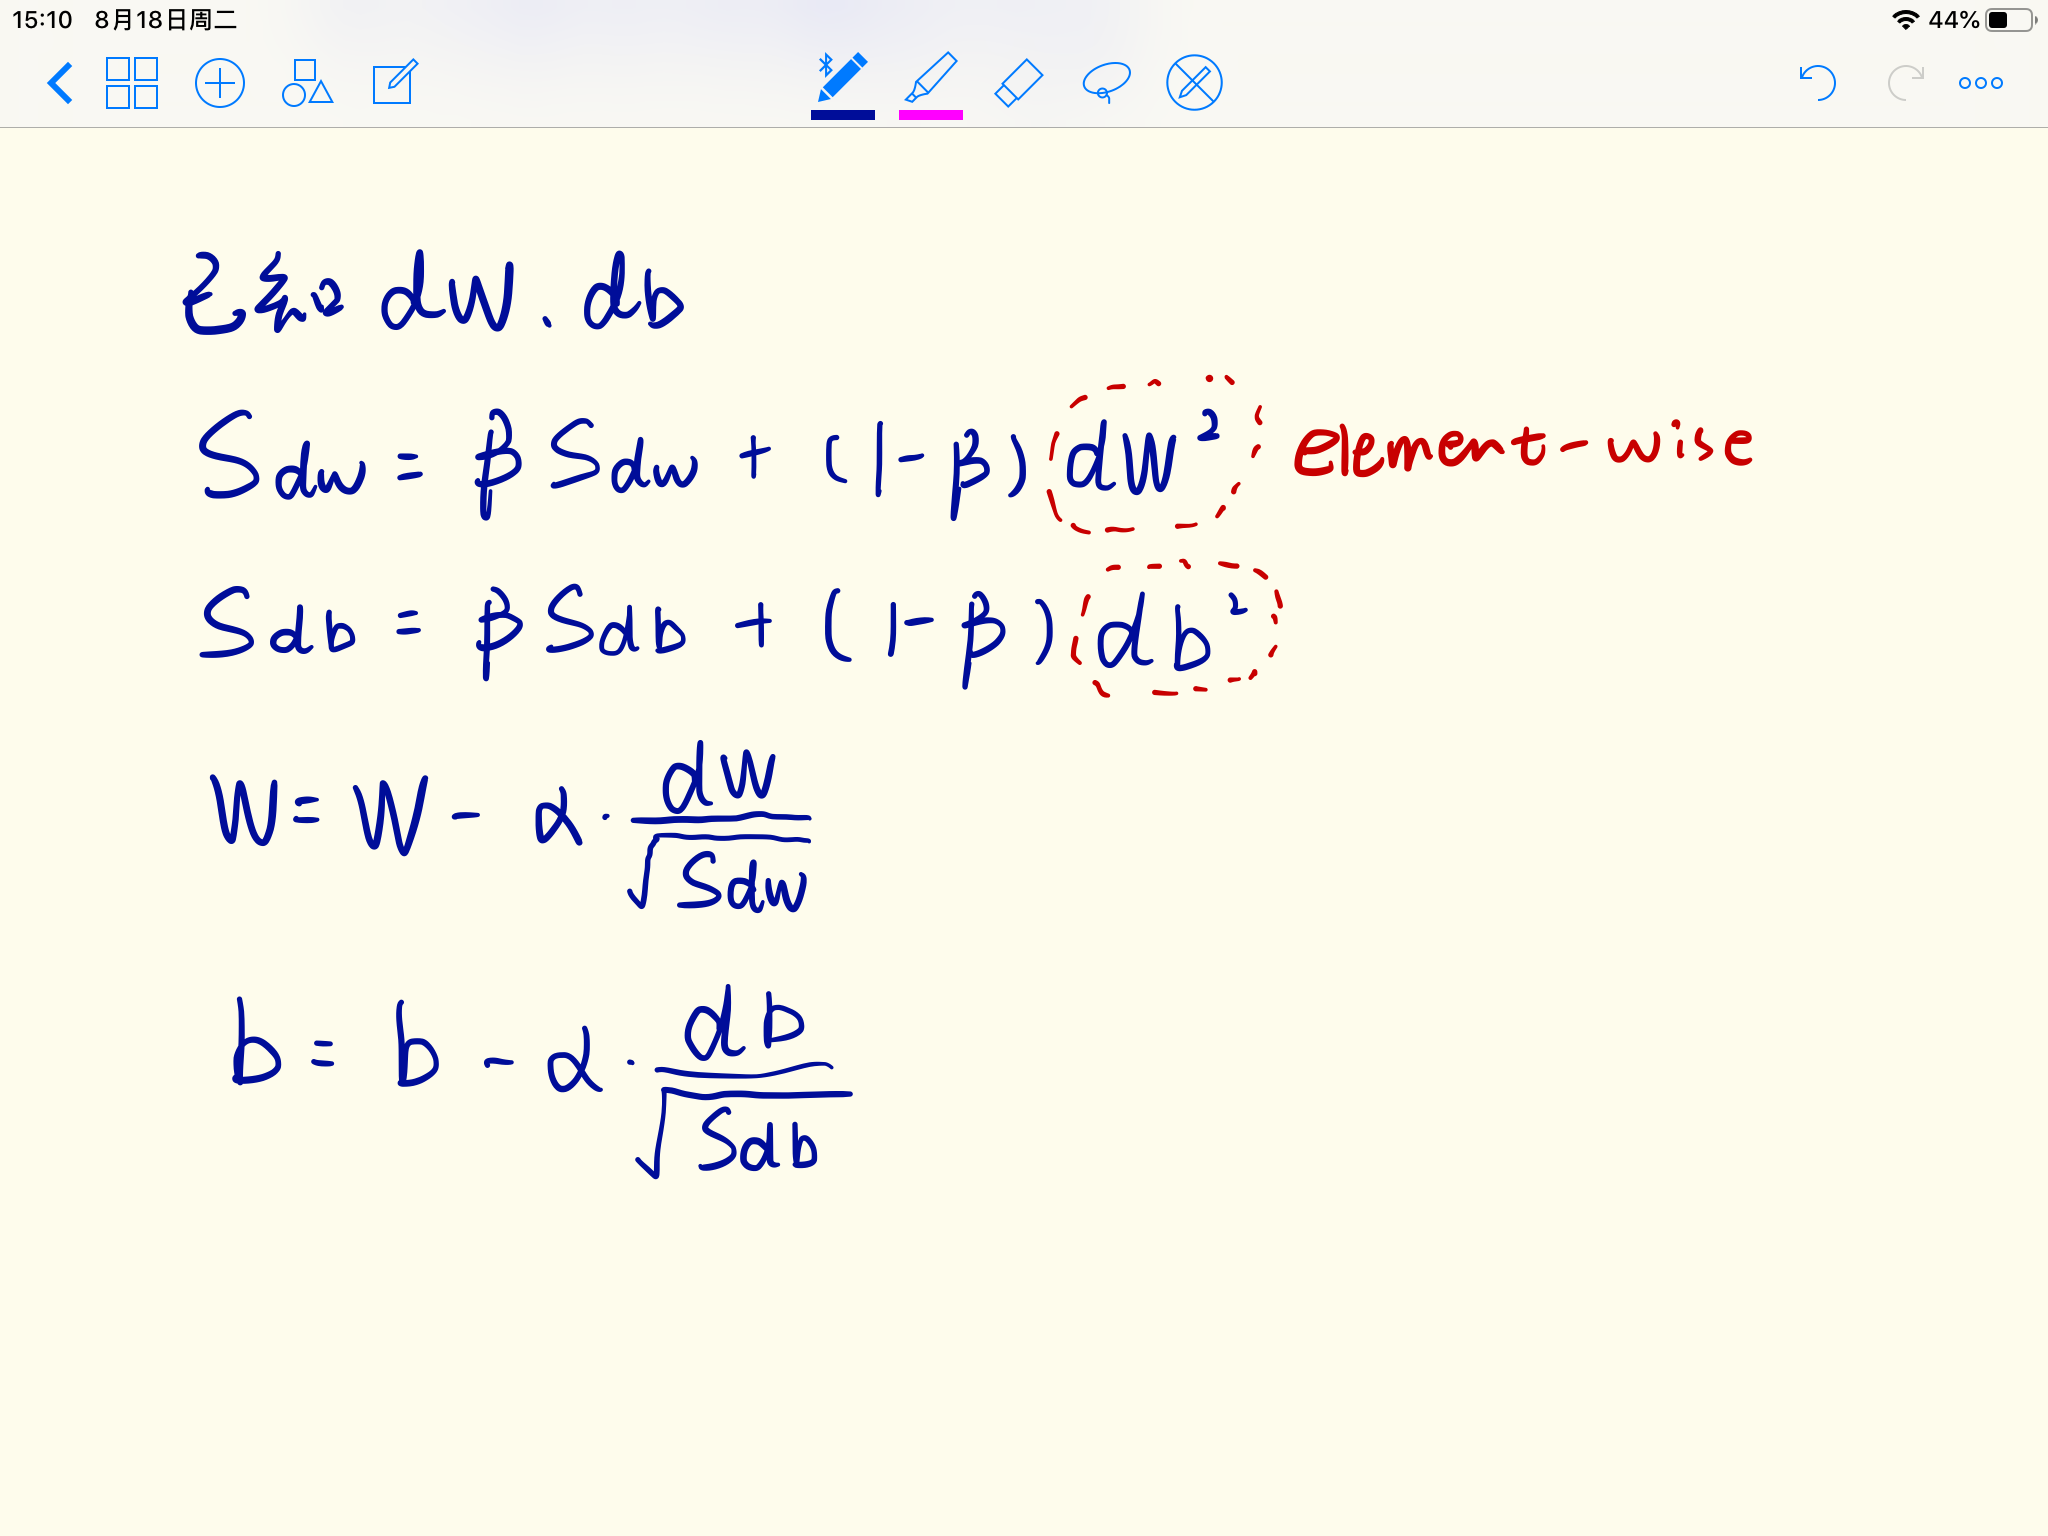 15:10 8月18日周二 44%
已知 dW、db
Sdw = β Sdw + (1-β) dW² element-wise
Sdb = β Sdb + (1-β) db²
W = W - α · dW / √Sdw
b = b - α · db / √Sdb